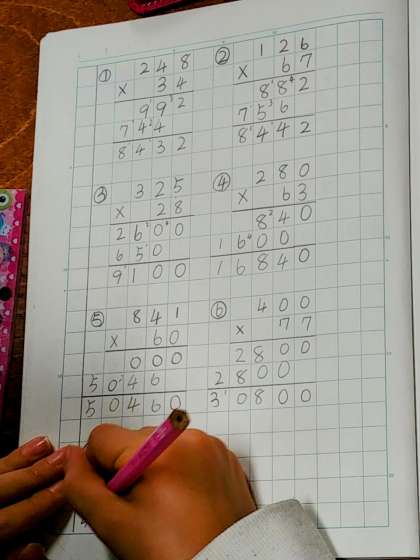 ① 248
× 34
992
744
8432
② 126
× 67
882
756
8442
③ 325
× 28
2600
650
9100
④ 280
× 63
840
1680
16840
⑤ 841
× 60
000
5046
50460
⑥ 400
× 77
2800
2800
30800